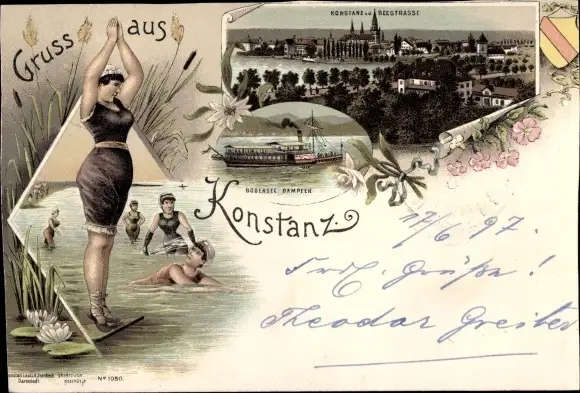 Gruss aus
KONSTANZ v.d. SEESTRASSE
BODENSEE DAMPFER
Konstanz
17/6 97.
Frdl. Grüße!
Theodor Greiter
Darmstadt
No 1080.